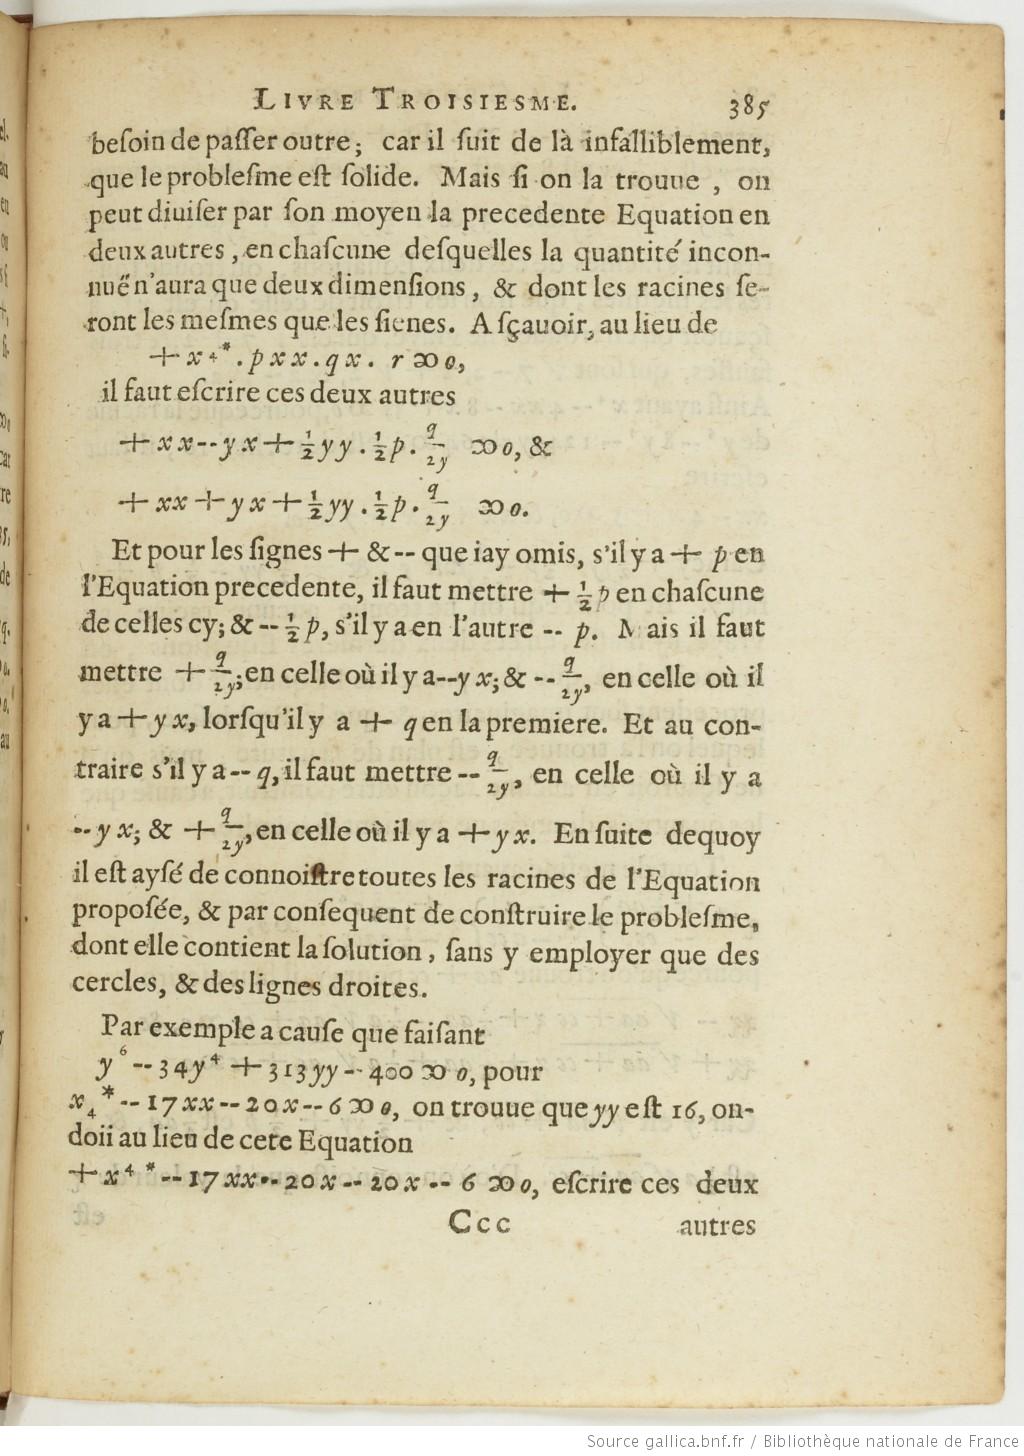 LIVRE TROISIESME. 385
beſoin de paſſer outre; car il ſuit de là infalliblement,
que le probleſme eſt ſolide. Mais ſi on la trouue, on
peut diuiſer par ſon moyen la precedente Equation en
deux autres, en chaſcune deſquelles la quantité incon-
nuë n'aura que deux dimenſions, & dont les racines ſe-
ront les meſmes que les ſienes. A ſçauoir, au lieu de
+ x⁴*. p x x. q x. r ∞ 0,
il faut eſcrire ces deux autres
+ x x -- y x + ½ y y. ½ p. q/2y ∞ 0, &
+ x x + y x + ½ y y. ½ p. q/2y ∞ 0.
Et pour les ſignes + & -- que iay omis, s'il y a + p en
l'Equation precedente, il faut mettre + ½ p en chaſcune
de celles cy; & -- ½ p, s'il y a en l'autre -- p. Mais il faut
mettre + q/2y; en celle où il y a -- y x; & -- q/2y, en celle où il
y a + y x, lorſqu'il y a + q en la premiere. Et au con-
traire s'il y a -- q, il faut mettre -- q/2y, en celle où il y a
-- y x; & + q/2y, en celle où il y a + y x. En ſuite dequoy
il eſt ayſé de connoiſtre toutes les racines de l'Equation
propoſée, & par conſequent de conſtruire le probleſme,
dont elle contient la ſolution, ſans y employer que des
cercles, & des lignes droites.
Par exemple a cauſe que faiſant
y⁶ -- 34 y⁴ + 313 y y -- 400 ∞ 0, pour
x₄* -- 17 x x -- 20 x -- 6 ∞ 0, on trouue que y y eſt 16, on-
doii au lieu de cete Equation
+ x⁴* -- 17 x x -- 20 x -- 20 x -- 6 ∞ 0, eſcrire ces deux
Ccc autres
Source gallica.bnf.fr / Bibliothèque nationale de France